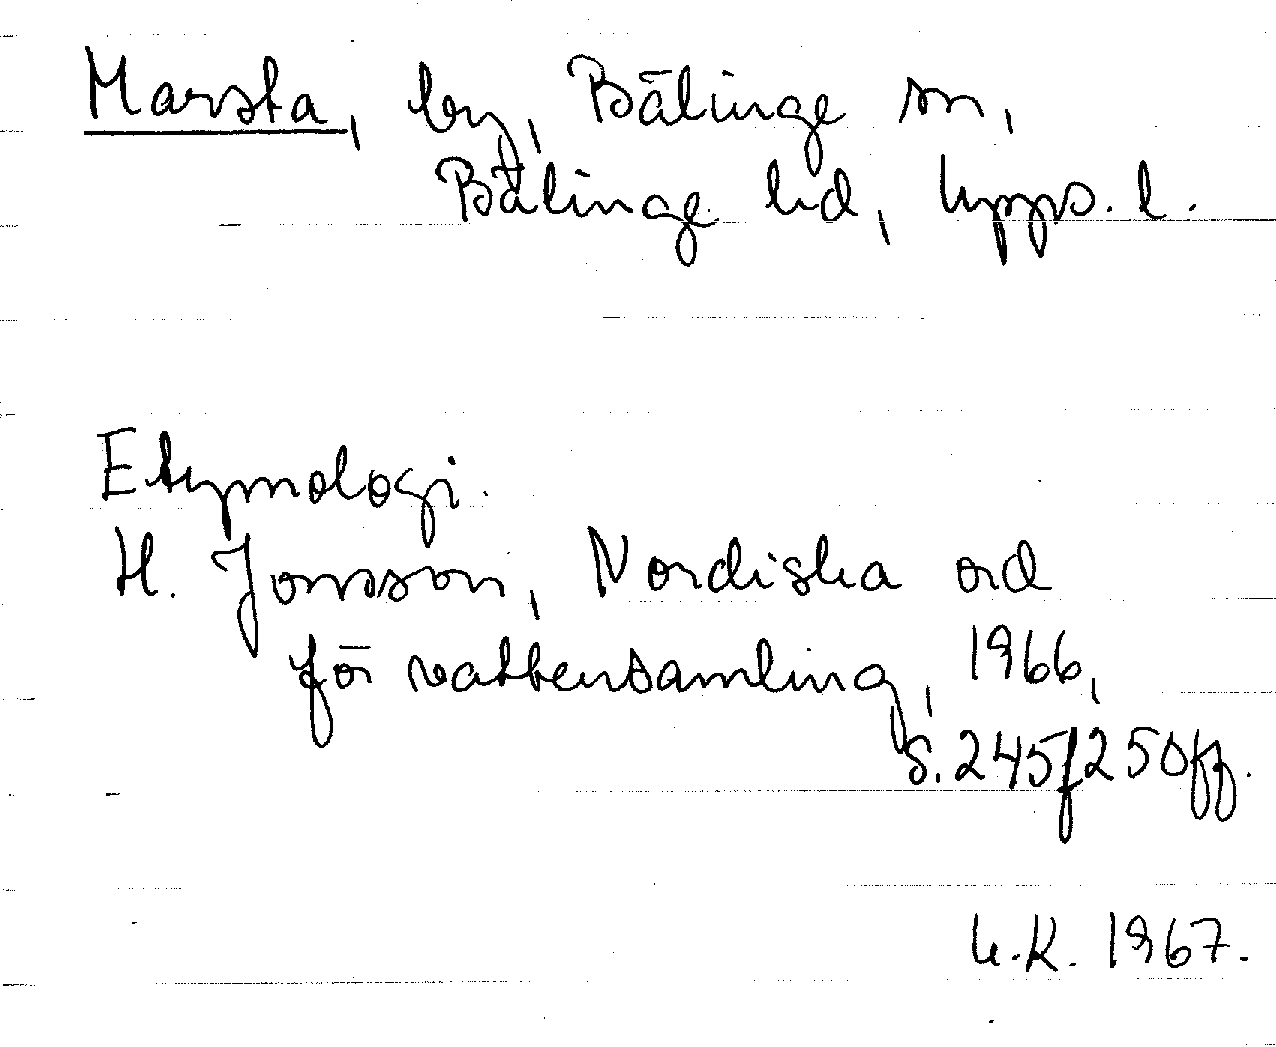 Marsta, by, Bälinge sn,
Bälinge hd, Upps. l.
Etymologi.
H. Jonsson, Nordiska ord
för vattensamling, 1966,
s. 245f 250ff.
U.K. 1967.